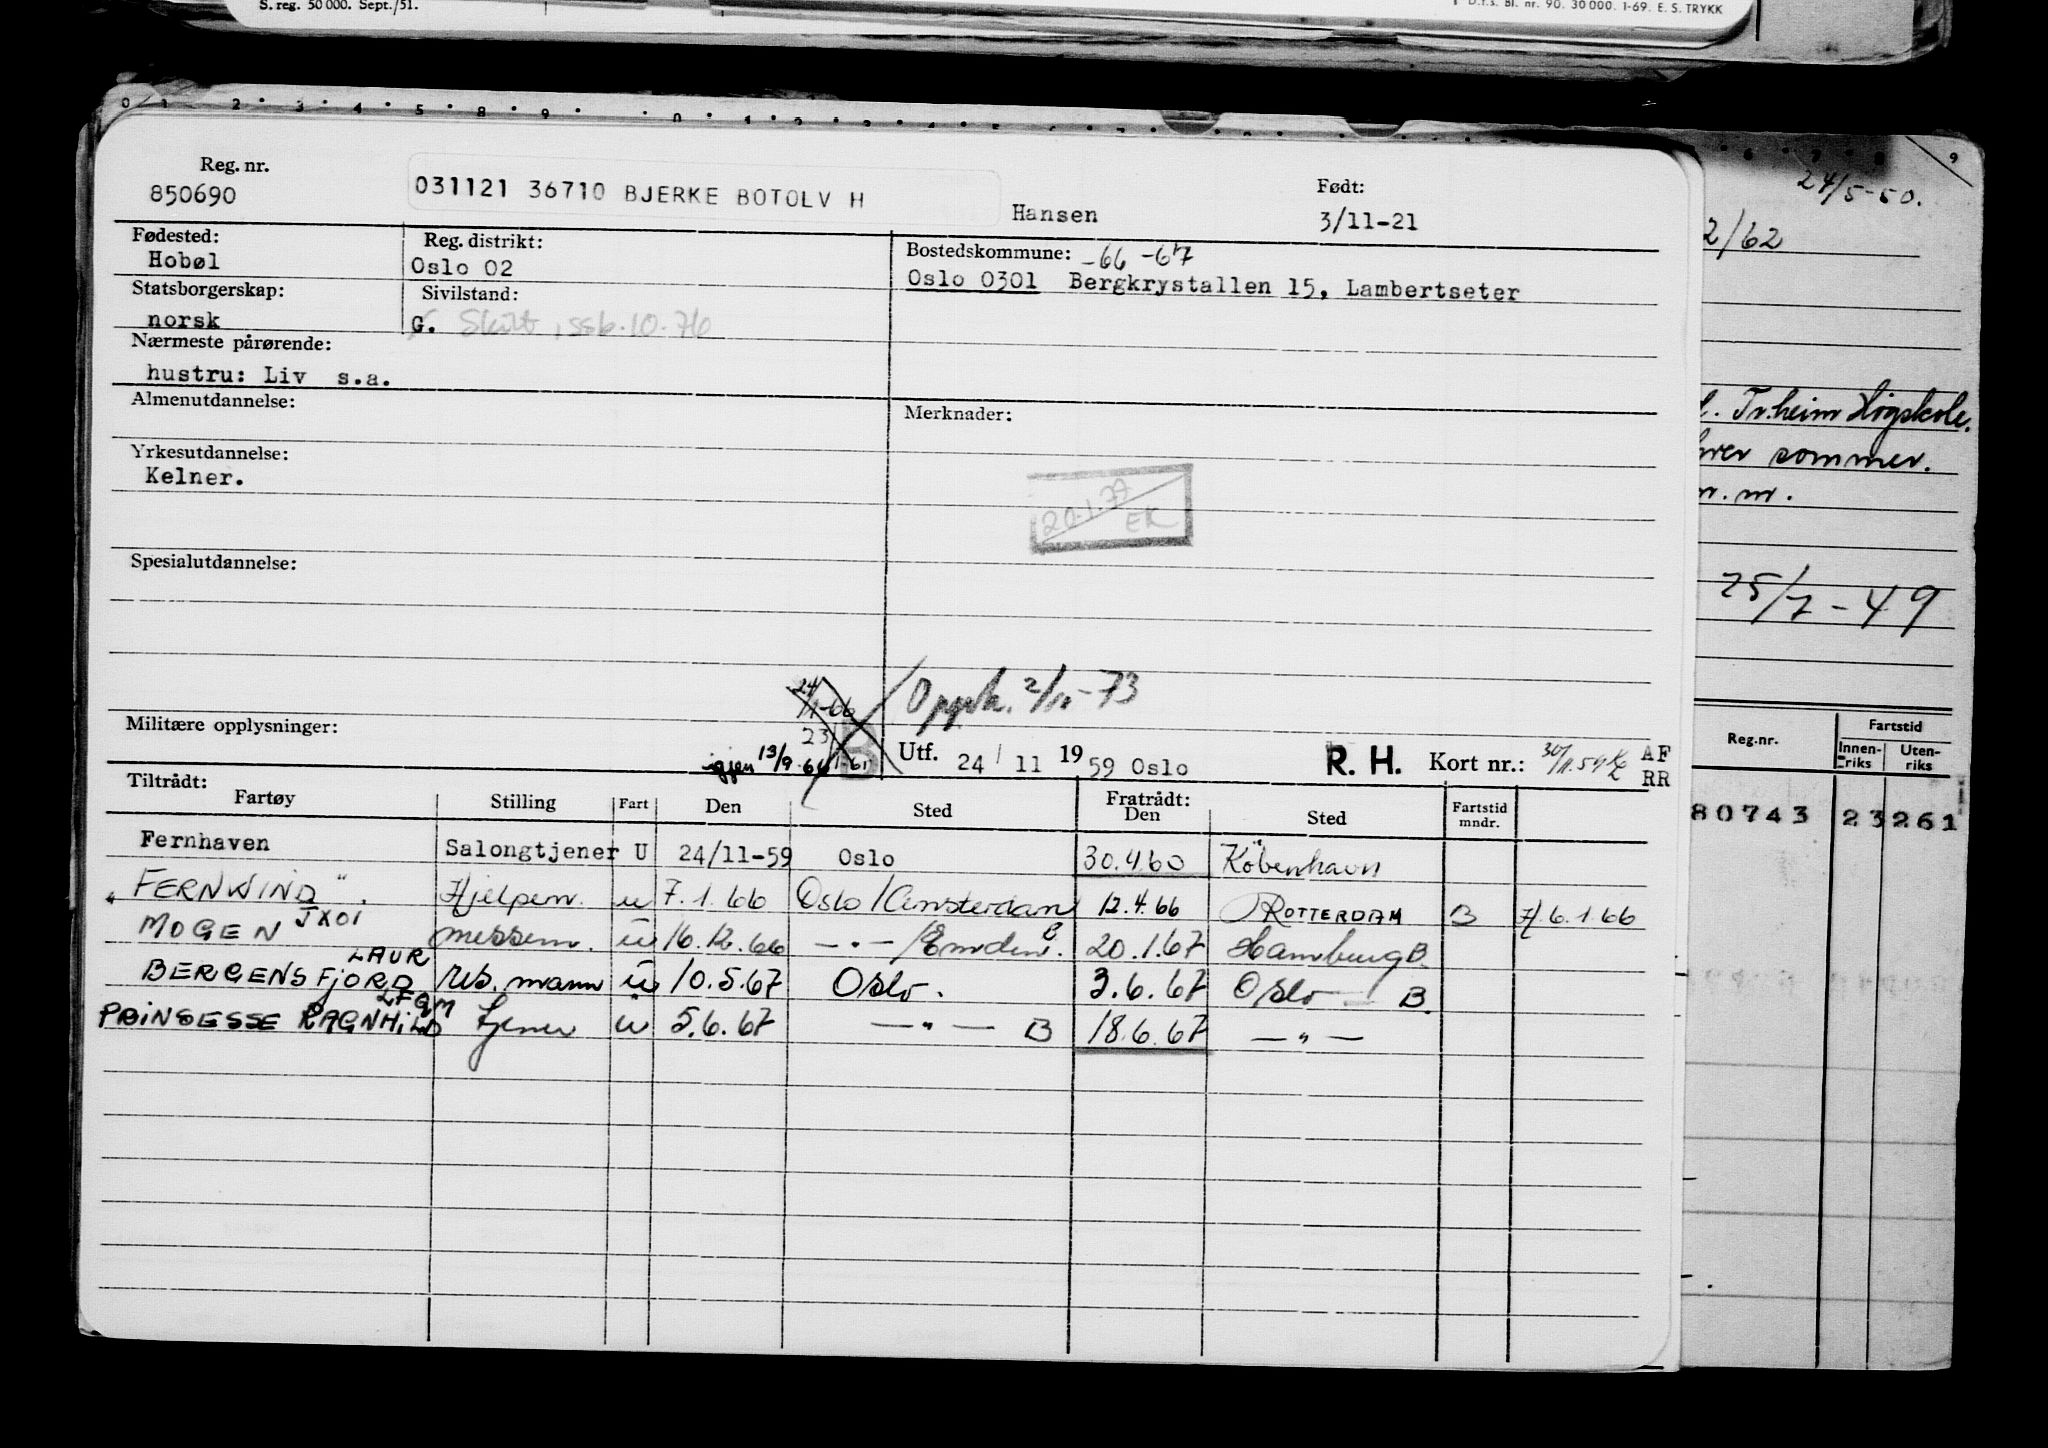 S. reg. 50 000. Sept./51.
D.f.s. Bl. nr. 90. 30 000. 1-69. E. S. TRYKK
Reg. nr.
850690
031121 36710 BJERKE BOTOLV H
Hansen
Født:
3/11-21
Fødested:
Hobøl
Reg. distrikt:
Oslo 02
Bostedskommune: -66 -67
Oslo 0301 Bergkrystallen 15, Lambertseter
Statsborgerskap:
norsk
Sivilstand:
G. Skilt, ssb.10.76
Nærmeste pårørende:
hustru: Liv s.a.
Almenutdannelse:
Merknader:
Yrkesutdannelse:
Kelner.
20.1.77
EK
Spesialutdannelse:
Militære opplysninger:
24/1-66
23/1-61
igjen 13/9-66
Oppsk. 2/11-73
Utf. 24/11 1959 Oslo
R. H. Kort nr.:
AF
RR
Tiltrådt:
Fartøy Stilling Fart Den Sted Fratrådt: Den Sted Fartstid mndr.
Fernhaven Salongtjener U 24/11-59 Oslo 30.4.60 København
"FERNWIND". Hjelpem. u 7.1.66 Oslo/Amsterdam 12.4.66 ROTTERDAM B 6.1.66
MOGEN JXOI messem. u 16.12.66 —"—/Emden. B 20.1.67 Hamburg B.
BERGENSFJORD LAUR res. mann u 10.5.67 Oslo. 3.6.67 Oslo B.
PRINSESSE RAGNHILD LFGM tjener u 5.6.67 —"— B 18.6.67 —"—
24/5-50.
2/62
Tr.heim Högskole.
sommer.
m.
25/7-49
Reg.nr.
Fartstid
Innen-
riks
Uten-
riks
80743 23 261